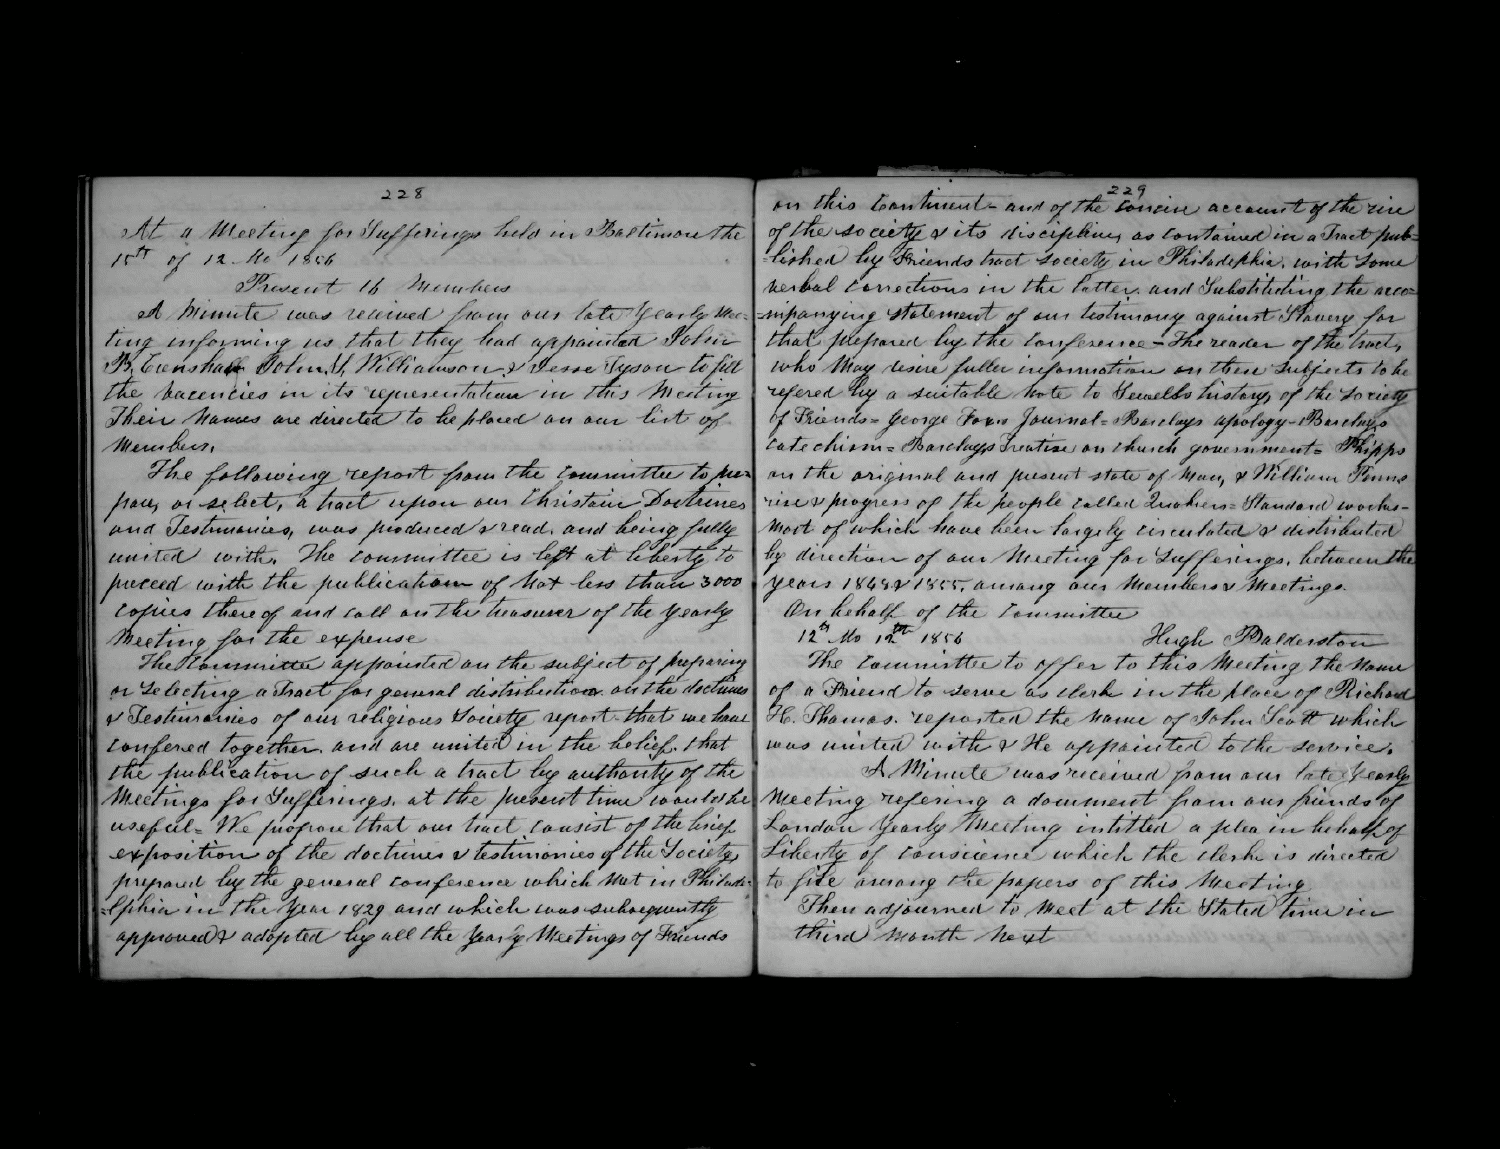 228
At a Meeting for Sufferings held in Baltimore the
15th of 12 Mo 1856
Present 16 Members
A Minute was received from our late Yearly Mee=
ting informing us that they had appointed John
B. Crenshaw John Y. Williamson & Jesse Tyson to fill
the vacencies in its representation in this Meeting
Their Names are directed to be placed on our list of
Members.
The following report from the Committee to pre=
pare, or select, a tract upon our Christain Doctrines
and Testimonies, was produced & read, and being fully
united with. The Committee is left at liberty to
proceed with the publication of Not less than 3000
copies thereof and call on the treasurer of the Yearly
Meeting for the expense
The Committee appointed on the subject of preparing
or Selecting a Tract for general distribution on the doctrines
& Testimonies of our religious Society report that we have
confered together, and are united in the belief, that
the publication of such a tract by authority of the
Meetings for Sufferings, at the present time would be
useful = We propose that our tract consist of the brief
exposition of the doctrines & testimonies of the Society,
prepared by the general conference which Met in Philade=
=lphia in the Year 1829 and which was subsequently
approved & adopted by all the Yearly Meetings of Friends
229
on this Continent = and of the Concise account of the rise
of the society & its discipline, as contained in a Tract pub=
=lished by Friends tract Society in Philadelphia, with Some
verbal corrections in the latter, and Substituting the acco=
=mpanying statement of our testimony against Slavery for
that prepared by the Conference = The reader of the tract,
who May desire fuller information on these Subjects to be
refered by a suitable Note to Sewells history, of the Society
of Friends = George Foxes Journal = Barclays apology = Barclays
Catechism = Barclays Treatise on church government = Phipps
on the original and present state of Man, & William Penns
rise & progress of the people called Quakers = Standard works =
Most of which have been largely circulated & distributed
by direction of our Meeting for Sufferings, between the
Years 1848 & 1855, among our Members & Meetings.
On behalf of the Committee
12th Mo 12th 1856 Hugh Balderston
The Committee to offer to this Meeting the Name
of a Friend to serve as clerk in the place of Richard
H. Thomas. reported the Name of John Scott which
was united with & He appointed to the service.
A Minute was received from our late Yearly
Meeting refering a document from our friends of
London Yearly Meeting intitled a plea in behalf of
Liberty of Conscience which the clerk is directed
to file among the papers of this Meeting
Then adjourned to Meet at the Stated time in
third Month Next